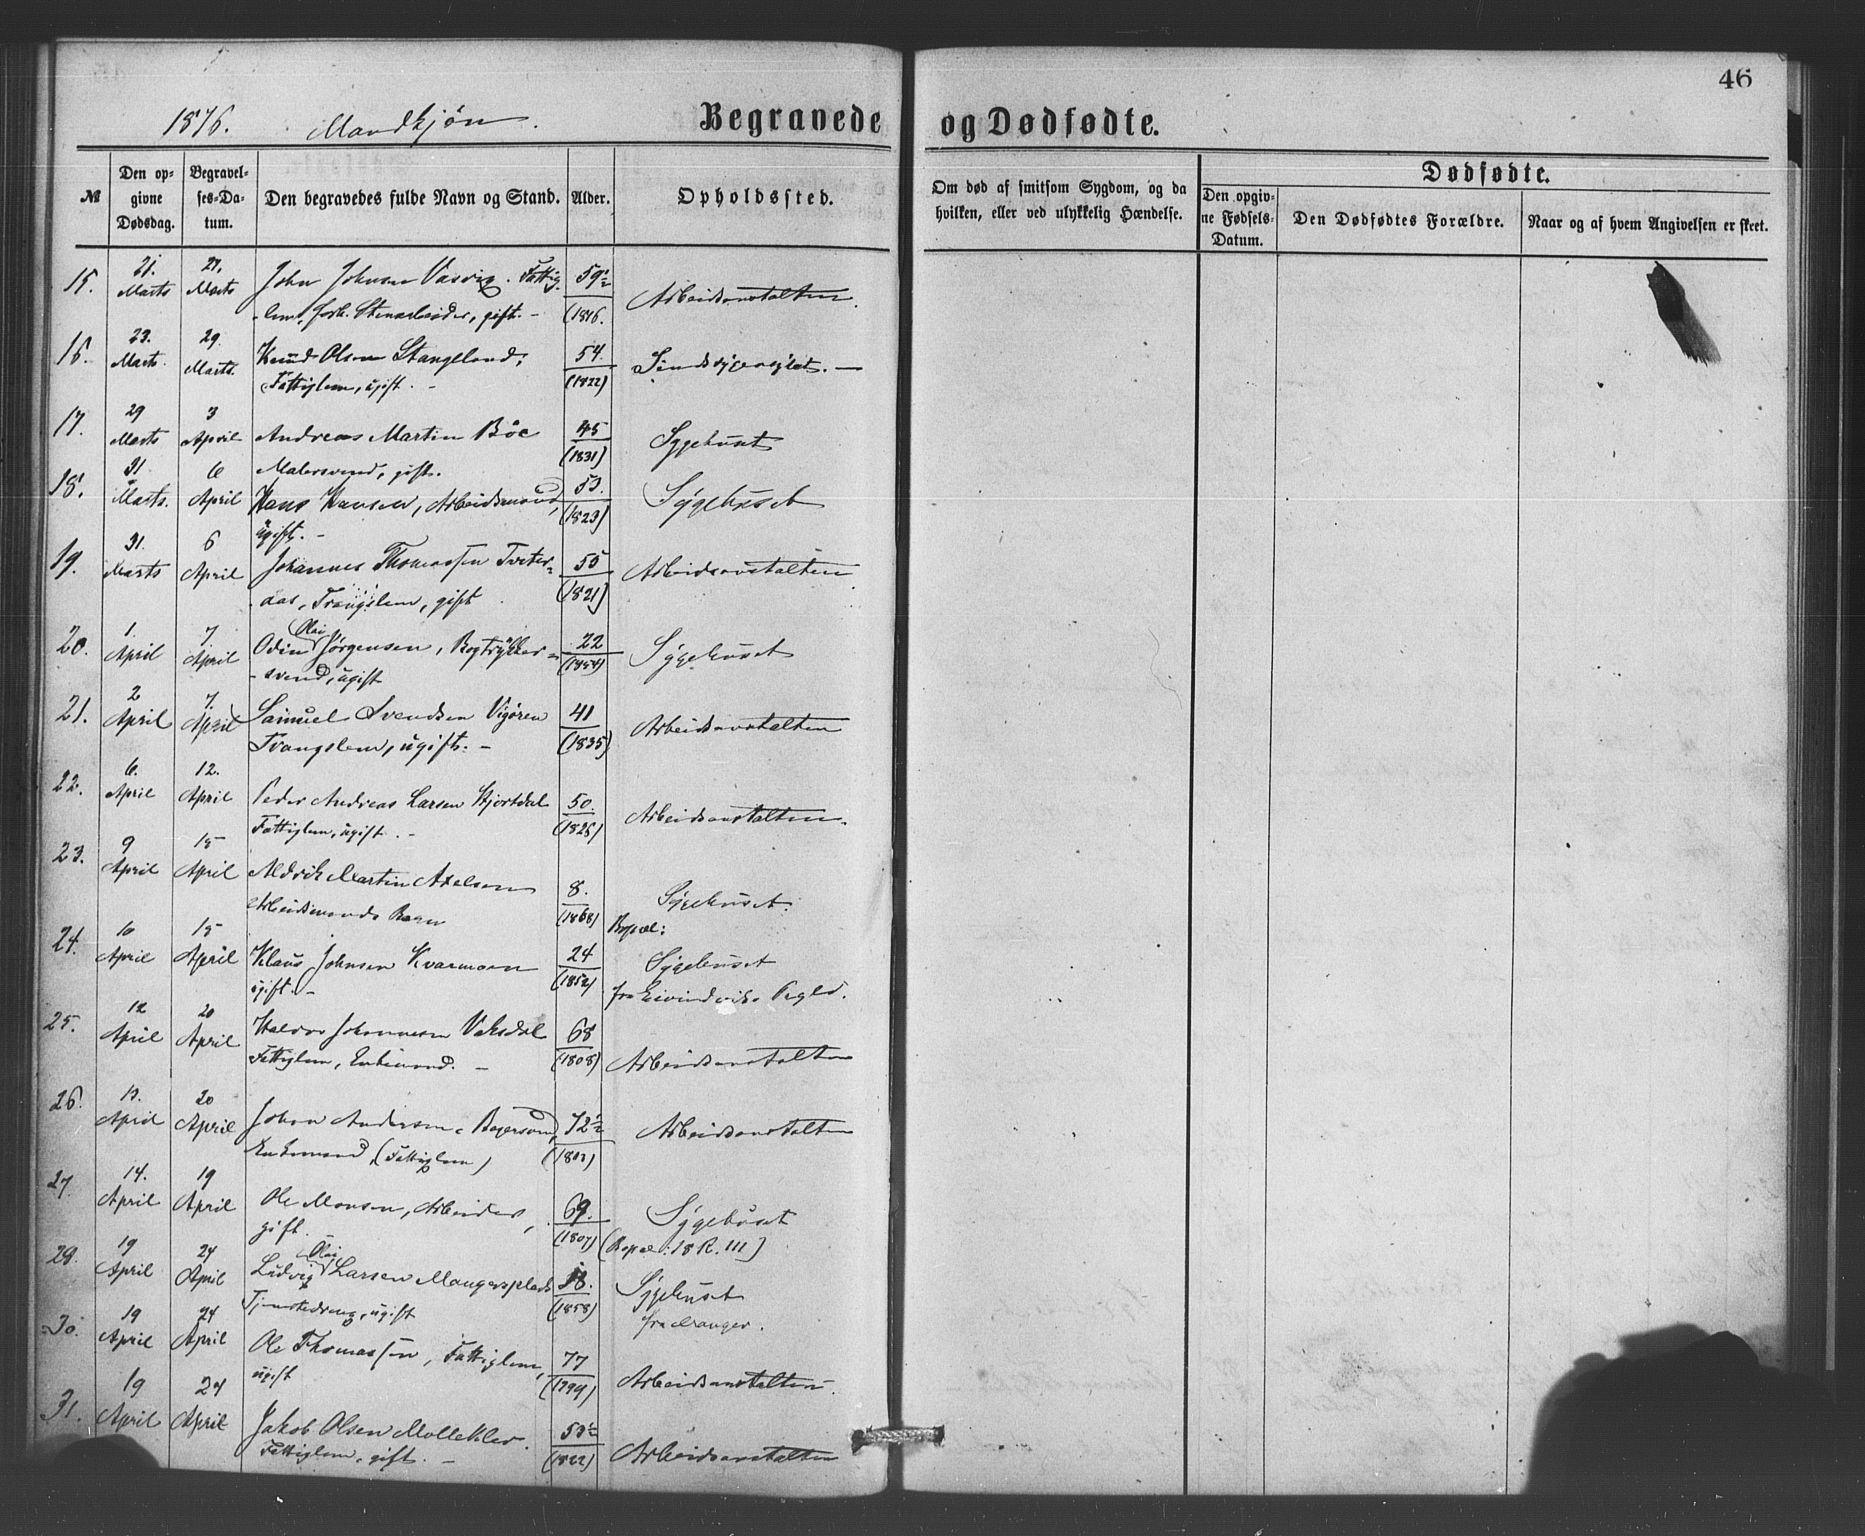 46
1876. Mandkjøn.
Begravede og Dødfødte.
№
Den opgivne Dødsdag.
Begravelses-Datum.
Den begravedes fulde Navn og Stand.
Alder.
Opholdssted.
Om død af smitsom Sygdom, og da hvilken, eller ved ulykkelig Hændelse.
Dødfødte.
Den opgivne Fødsels-Datum.
Den Dødfødtes Forældre.
Naar og af hvem Angivelsen er skeet.
15. 21. Marts 27. Marts John Johnsen Vasvig. Fattig- 59½ Arbeidsanstalten.
lem, forh. Stenarbeider, gift. - (1816.
16. 23. Marts. 29. Marts. Knud Olsen Stangeland, 54. Sindssygeasylet. —
Fattiglem, ugift. - (1822)
17. 29 Marts 3 April Andreas Martin Böe 45 Sygehuset
Malersvend, gift. (1831)
18. 31 Marts. 6 April Hans Hansen, Arbeidsmand, 53. Sygehuset
ugift. - (1823)
19. 31. Marts 6 April Johannes Thomassen Tveter- 55 Arbeidsanstalten
aas, Tvangslem, gift (1821)
20. 1. April 7. April Odin Olai Jørgensen, Bogtrykker- 22 Sygehuset
svend, ugift (1854)
21. 2 April 7. April Samuel Svendsen Vigøren 41 Arbeidsanstalten
Tvangslem, ugift. - (1835)
22. 6. April 12. April Peder Andreas Larsen Hjortdal 50. Arbeidsanstalten.
Fattiglem, ugift. - (1826)
23. 9 April 15 April Aldrik Martin Axelsen 8. Sygehuset.
Arbeidsmands Barn (1868)
24. 10 April 15 April Klaus Johnsen Kvamoen 24 Bopæl: Sygehuset
ugift. - (1852) fra Eivindviks Prgld.
25. 12 April 20 April Haldor Johannesen Vaksdal 68 Arbeidsanstalten
Fattiglem, Enkemand. - (1808)
26. 13. April 20 April Johan Andersen Bagersvend, 72½ Arbeidsanstalten
Enkemand, (Fattiglem) (1803)
27. 14. April 19 April Ole Monsen, Arbeider, 69. Sygehuset
gift. (1807) (Bopæl: 18 R. III)
29. 19 April 24 April Ludvig Olai Larsen Mangersplads 18. Sygehuset
Tjenestedreng, ugift (1858) fra Manger.
30. 19 April 24 April Ole Thomassen, Fattiglem, 77 Arbeidsanstalten
ugift (1799)
31. 19 April 24 April Jakob Olsen Mollekler. 53½ Arbeidsanstalten
Fattiglem, gift. - (1822)